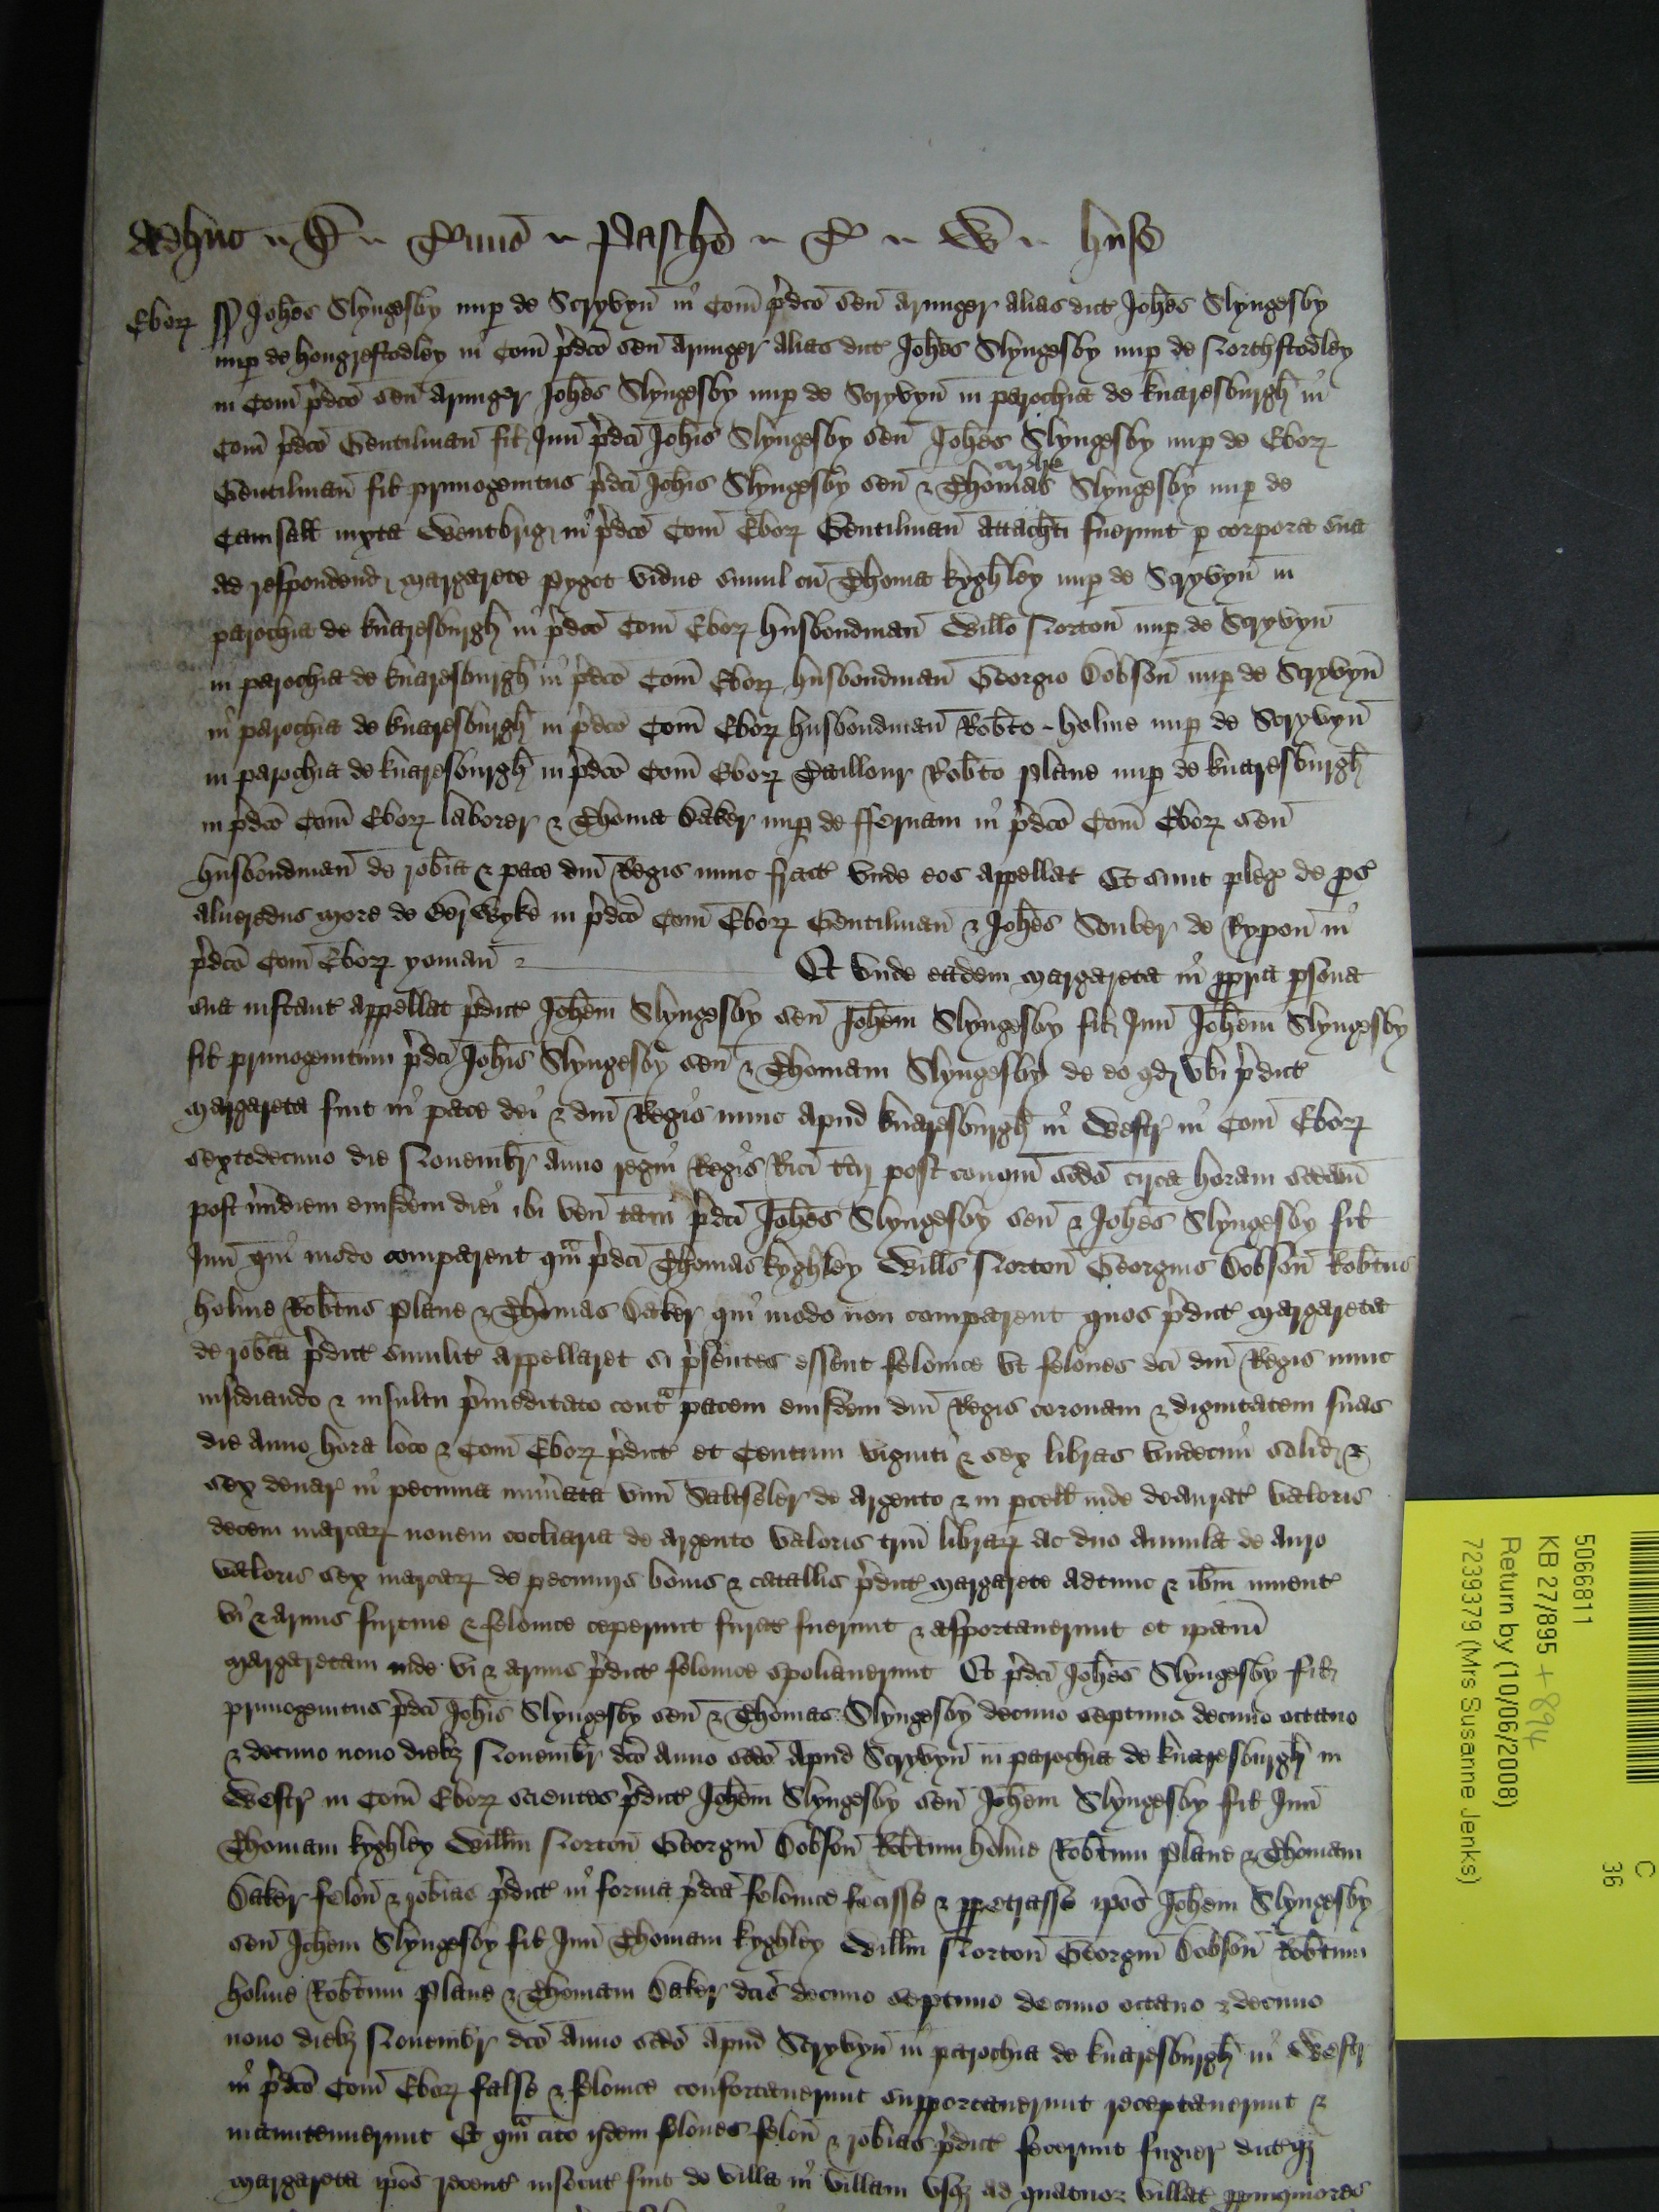 Adhuc de Termino Pasche Huse
Ebor̄ Joh̄es Slyngesby nup de Scryvyn in Com̄ p̄dco sen̄ armiger alias dict Joh̄es Slyngesby
nup de hongrestodley in Com̄ p̄dco sen̄ armiger alias dict Joh̄es Slyngesby nup de Northstodley
in Com̄ p̄dco sen̄ armiger Joh̄es Slyngesby nup de Scryvyn in parochia de knaresburgh in
Com̄ p̄dco Gentilman fil Jun̄ p̄dci Joh̄is Slyngesby sen̄ Joh̄es Slyngesby nup de Ebor̄
Gentilman fil primogenitus p̄dci Joh̄is Slyngesby sen̄ & Thomas Slyngesby nup de
Camsall iuxta Wentbrig in p̄dco Com̄ Ebor̄ Gentilman attachi fuerunt p corpora sua
ad respondend margarete pygot vidue simul cū Thoma kyghley nup de Scryvyn in
parochia de knaresburgh in p̄dco Com̄ Ebor̄ husbondman Will̄o Norton nup de Scryvyn
in parochia de knaresburgh in p̄dco Com̄ Ebor̄ husbondman Georgio Dobson nup de Scryvyn
in parochia de knaresburgh in p̄dco Com̄ Ebor̄ husbondman Rob̄to holme nup de Scryvyn
in parochia de knaresburgh in p̄dco Com̄ Ebor̄ Taillour Rob̄to plane nup de knaresburgh
in p̄dco Com̄ Ebor̄ laborer & Thoma Baker nup de ffernam in p̄dco Com̄ Ebor̄ sen̄
husbondman de rob̄ia & pace dn̄i Regis nunc fract vnde eos appellat Et sunt pleg de p̄s
alueredus more de in p̄dco Com̄ Ebor̄ Gentilman & Joh̄es de Rypon in
p̄dco Com̄ Ebor̄ yoman Et vnde eadem margareta in ppria psona
sua instant appellat p̄dict Joh̄em Slyngesby sen̄ Joh̄em Slyngesby fil Jun̄ Joh̄em Slyngesby
fil primogenitum p̄dci Joh̄is Slyngesby sen̄ & Thomam Slyngesby de eo qd vbi p̄dict
margareta fuit in pace dei & dn̄i Regis nunc apud knaresburgh in Westr in Com̄ Ebor̄
sextodecimo die Nouembr anno regni Regis Ric̄i t̄cij post conqm̄ scd̄o circa horam octau
post m̄idiem eiusdem diei ibi ven̄ tam p̄dci Joh̄es Slyngesby sen̄ & Joh̄es Slyngesby fil
Jun̄ qui modo comparent qm̄ p̄dci Thomas kyghley Will̄s Norton Georgius Dobson Rob̄tus
holme Rob̄tus plane & Thomas Baker qui modo non comparent quos p̄dict margareta
de rob̄ia p̄dict similit appellaret si p̄sentes essent felonice vt felones dci dn̄i Regis nunc
insidiando & insultu p̄meditato cont̄ pacem eiusdem dn̄i Regis coronam & dignitatem suas
die anno hora loco & Com̄ Ebor̄ p̄dict et Centum viginti & sex libras vndecim solid &
sex denar in pecunia num̄ata vnū Saltseler de argento & in pcell inde deaurat valoris
decem marcar̄ nouem cocliaria de argento valoris triū librar̄ ac duo annula de auro
valoris sex marcar̄ de pecunijs bonis & catallis p̄dict margarete adtunc & ib̄m inuent
vi & armis furtiue & felonice ceperunt furat fuerunt & asportauerunt et ip̄am
margaretam inde vi & armis p̄dict felonice spoliauerunt Et p̄dci Joh̄es Slyngesby fil
primogenitus p̄dci Joh̄is Slyngesby sen̄ & Thomas Slyngesby decimo septimo decimo octauo
& decimo nono dieb Nouembr dco Anno scd̄o Apud Scryvyn in parochia de knaresburgh in
Westr in Com̄ Ebor̄ scientes p̄dict Joh̄em Slyngesby sen̄ Joh̄em Slyngesby fil Jun̄
Thomam kyghley Will̄m Norton Georgiū Dobson Rob̄tum holme Rob̄tum plane & Thomam
Baker felon̄ & rob̄ias p̄dict in forma p̄dca felonice fecisse & ppetrasse ip̄os Joh̄em Slyngesby
sen̄ Joh̄em Slyngesby fil Jun̄ Thomam kyghley Will̄m Norton Georgiū Dobson Rob̄tum
holme Rob̄tum plane & Thomam Baker dcis decimo septimo decimo octauo & decimo
nono dieb Nouembr dco Anno scd̄o apud Scryvyn in parochia de knaresburgh in Westr
in p̄dco Com̄ Ebor̄ false & felonice confortauerunt supportauerunt receptauerunt &
manutenuerunt Et qm̄ cito ijdem felones felon̄ & rob̄ias p̄dict fecerunt fugier dictaq
margareta ip̄os recent insecut fuit de villa in villam vsq ad quatuor villat ppinquiores
C
36
5066811
KB 27/895 + 894
Return by (10/06/2008)
7239379 (Mrs Susanne Jenks)